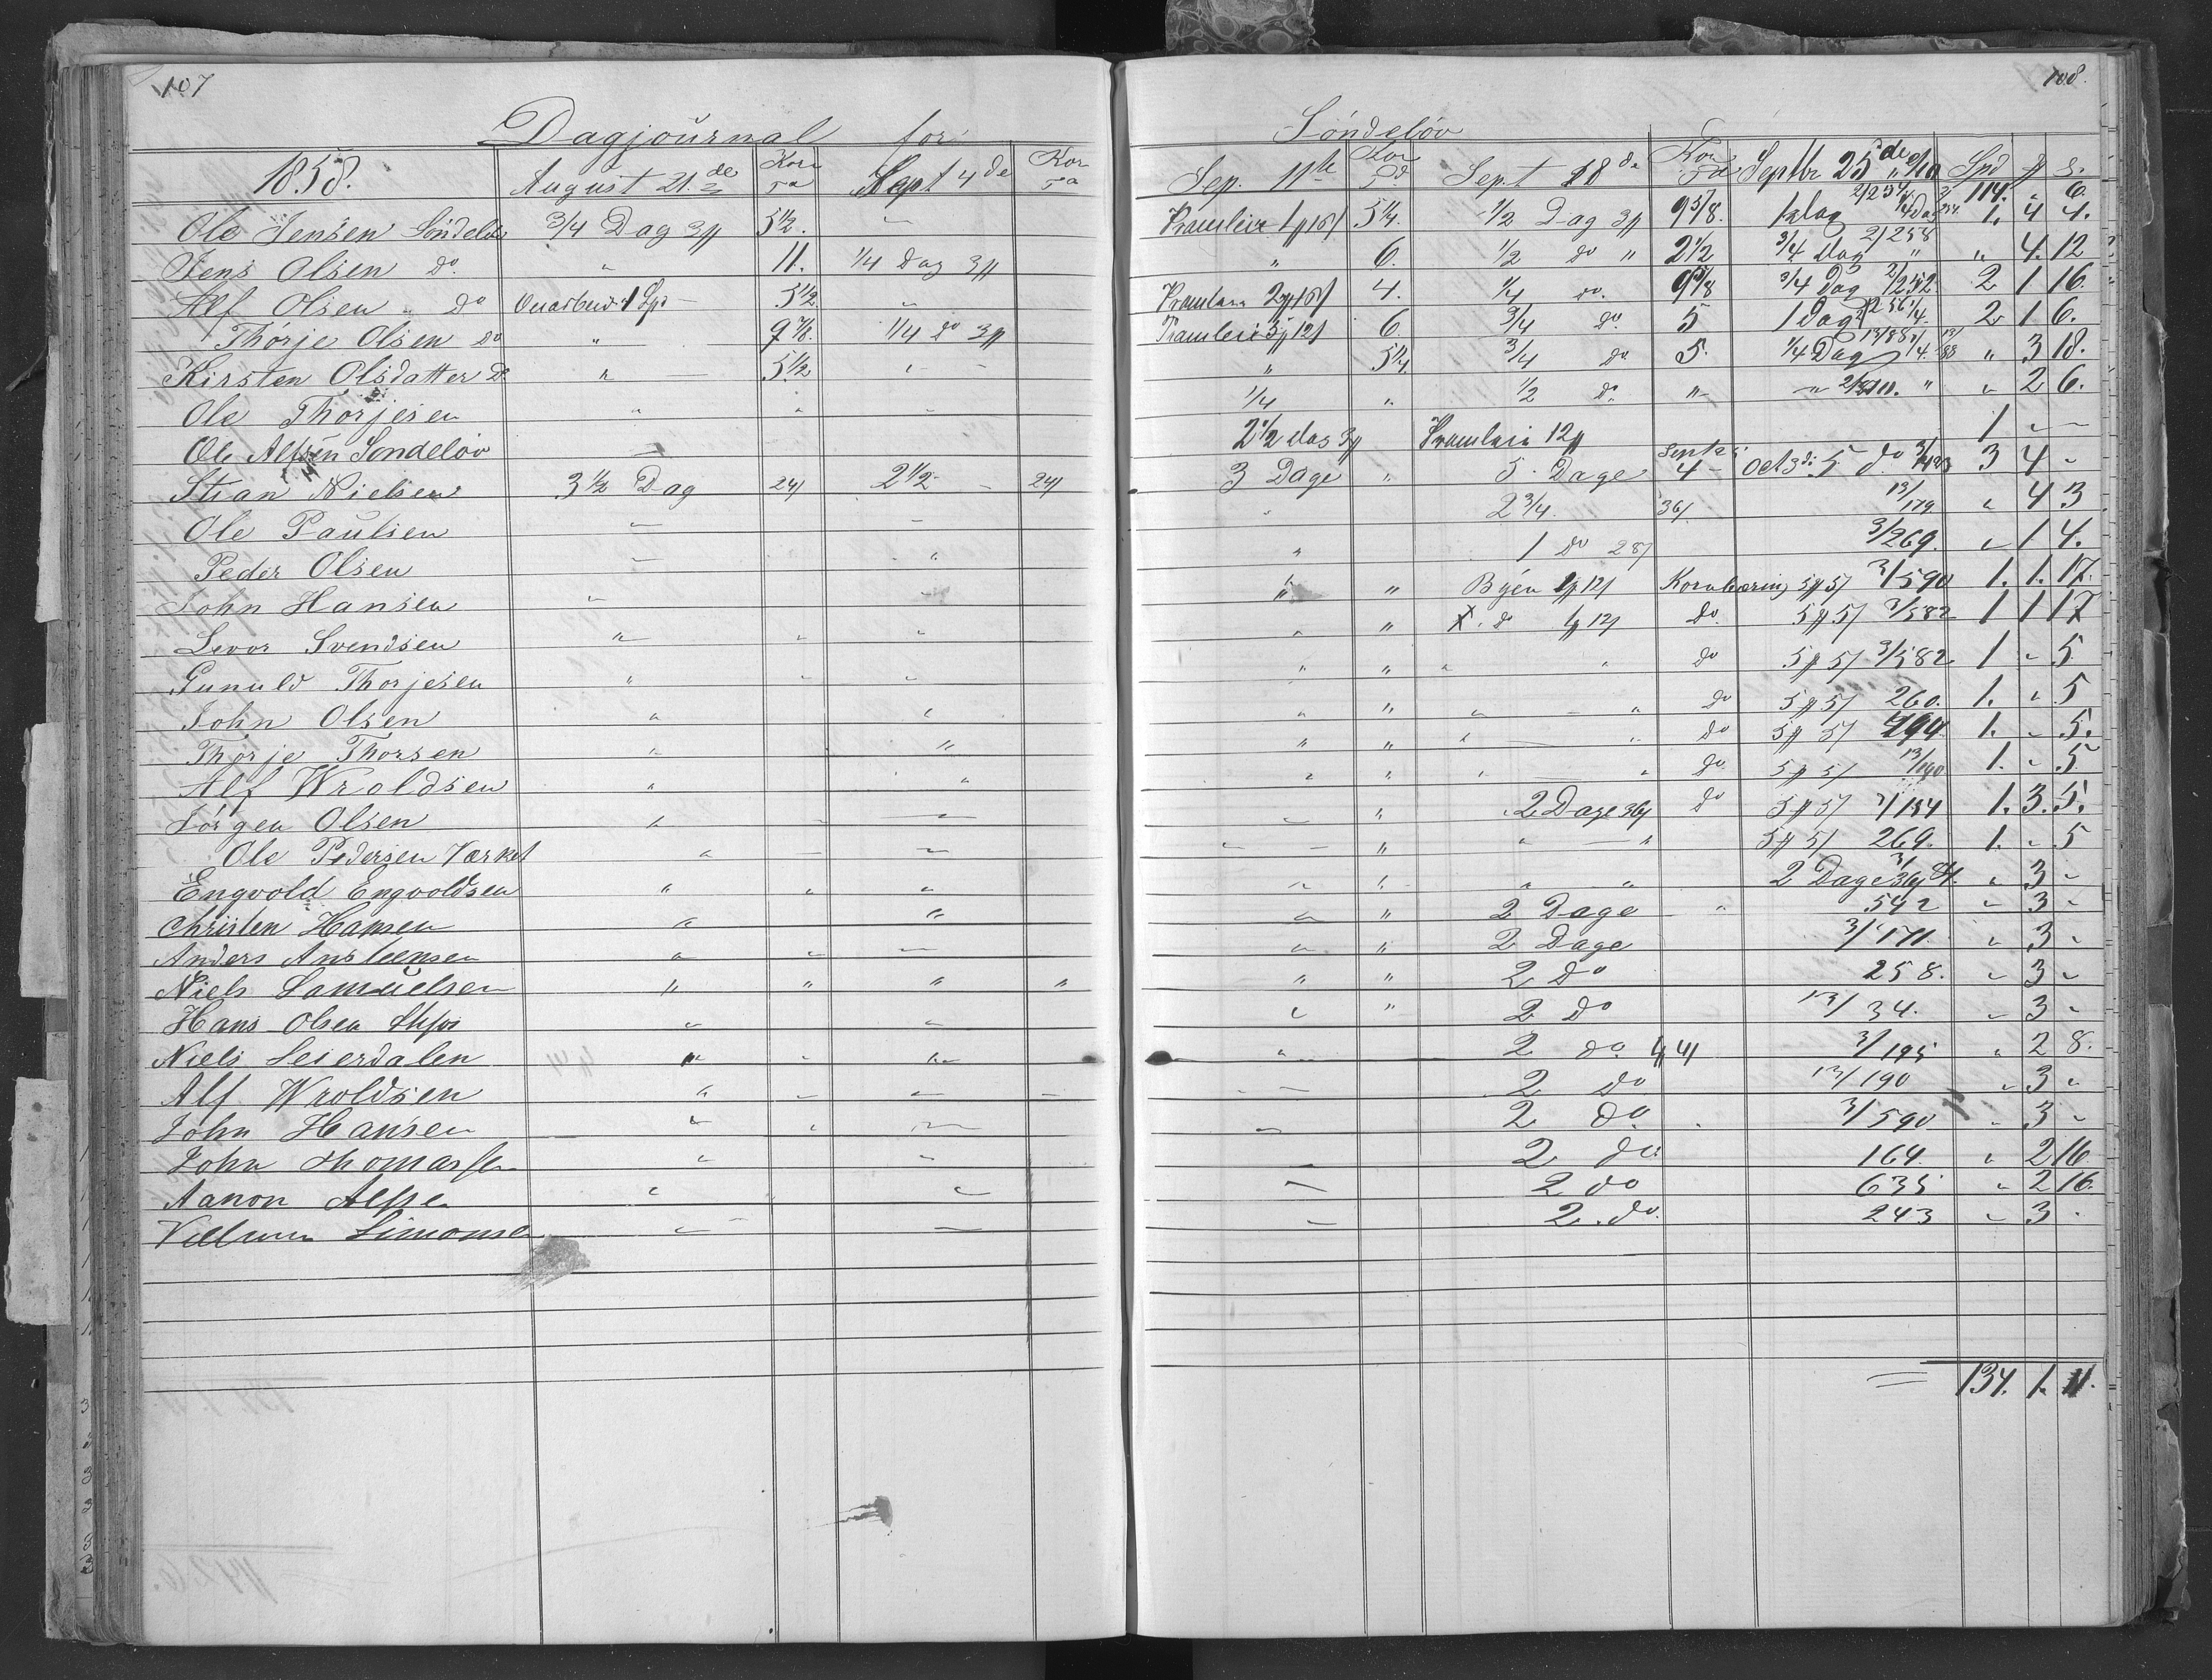 107
108.
Dagjournal for Söndelöv
1858. August 21.de Korn Td Sept 4de Korn Td Sep. 11te Kor Td Sept 18de Kor Td Septbr 25de Spd ß
114. " 6.
Ole Jensen Söndelöv 3/4 Dag 5 1/2. " Pramleie 5 1/4. 1/2 Dag 9 5/8. 1. 4 4.
Jens Olsen do " 11. 1/4 Dag " 6. 1/2 do " 2 1/2 3/4 Dag 2/258 " 4. 12
Alf Olsen " do 5 1/2 " Pramleie 4. 1/4 do. 9 5/8 3/4 Dag 2/252. 2 1 16.
Thörje Olsen do " 9 7/8. 1/4 do Pramleie 6. 3/4 do. 5 1 Dag 2 1 6.
Kirsten Olsdatter Do " 5 1/2. " " 5 1/4 3/4 do 5. 1/4 Dag " 3 18.
Ole Thorjesen " " " 1/4 " 1/2 do. " " " 2 6.
Ole Alfsen Söndelöv 2 1/2 dag Pramleie 1 " "
Stian Nielsen 3 1/2 Dag 24 2 1/2 24 3 Dage " 5 Dage 4 Oct 3di 5 do. 3 4 "
Ole Paulsen " " " 2 3/4. 36 13/179 " 4 3
Peder Olsen " " " 1 do 28 3/269. " 1 4.
John Hansen " " " " Byen Kornbæring 3/590 1. 1. 17.
Levor Svendsen " " " " " X. do do. 3/582 1 1 17
Gunuld Thorjesen " " " " " " " do 3/582 1 " 5
John Olsen " " " " " " do 260. 1. " 5
Thorje Thorsen " " " " " " do 294 1. " 5.
Alf Wroldsen " " " " " " do 13/190 1. " 5
Jörgen Olsen " " " " " 2 Dage 36 do 3/154 1. 3. 5.
Ole Pedersen Værket " " " " " " " 269. 1. " 5
Engvold Engvoldsen " " " " " " " 2 Dage " 3 "
Christen Hansen " " " " 2 Dage " 542 " 3 "
Anders Ansteensen " " " " " 2 Dage 3/171. " 3 "
Niels Samuelsen " " " " " " 2 Do 258. " 3 "
Hans Olsen " " " " 2 Do 13/34. " 3 "
Niels Leierdalen " " " " 2 do. 3/195 " 2 8.
Alf Wroldsen " " " " " 2 Do 13/190 " 3 "
John Hansen " " " " 2 do. 3/590 " 3 "
John Thomassen " " " 2 do 164. " 2 16.
Aanon Alfsen " " " 2 do 635 " 2 16.
Simonsen " " " 2. do. 243 " 3 "
134. 1. 11.